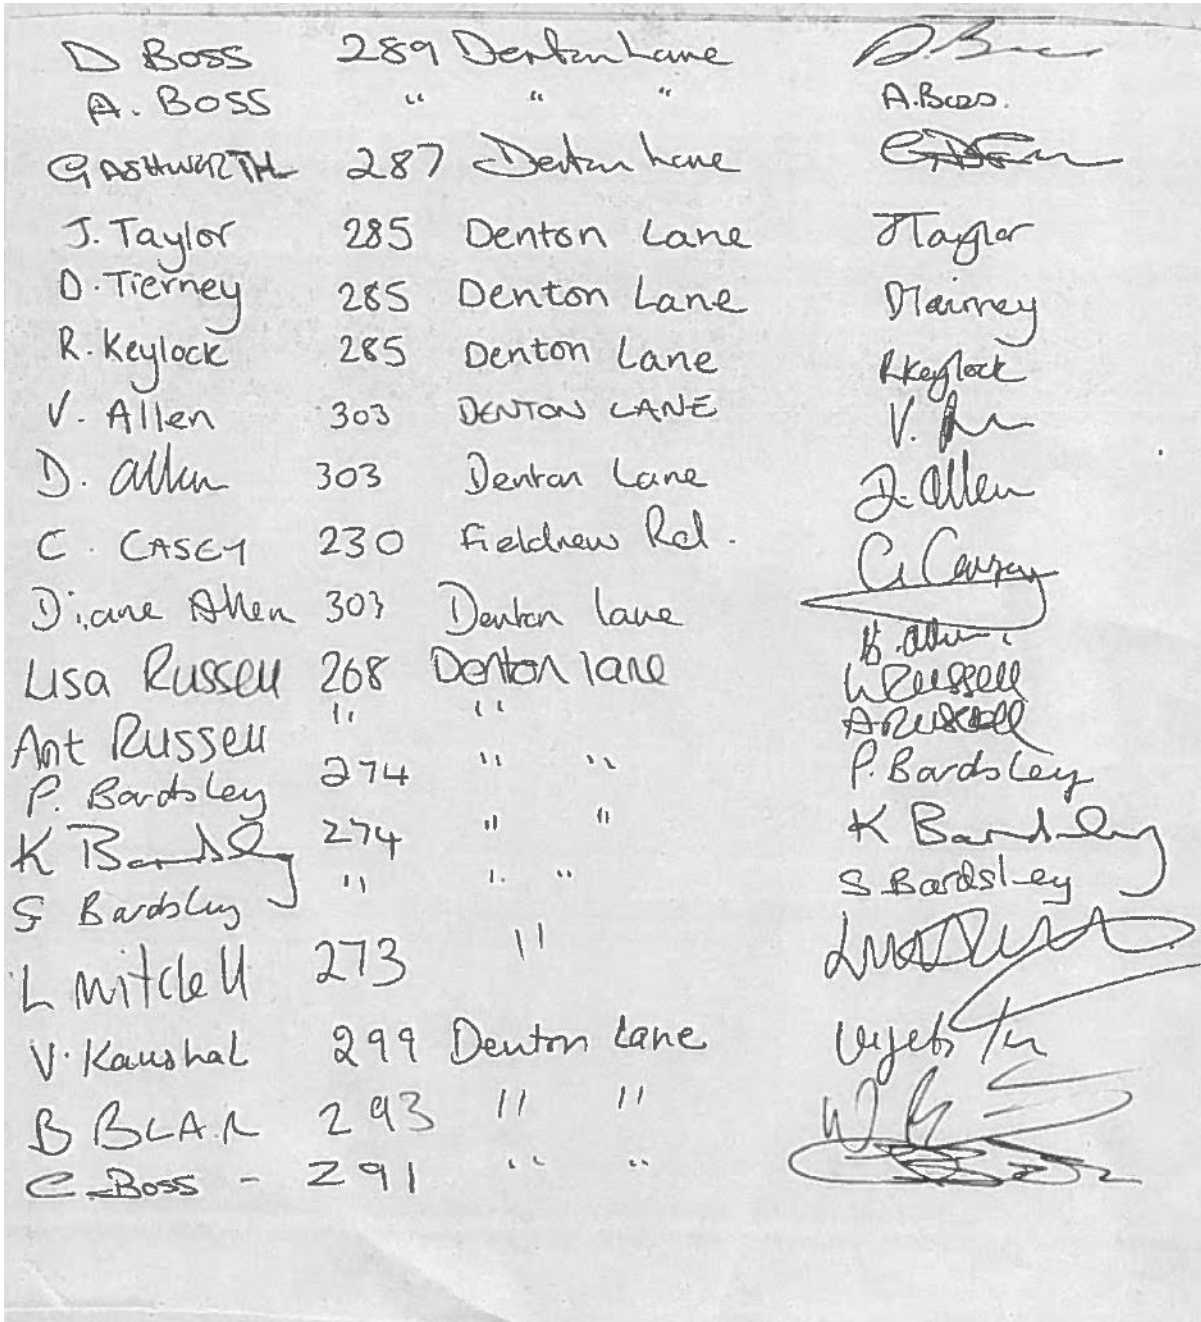 D BOSS 289 Denton Lane D. Boss
A. BOSS " " " A.Boss.
G ASHWORTH 287 Denton Lane
J. Taylor 285 Denton Lane JTaylor
D. Tierney 285 Denton Lane DTierney
R. Keylock 285 Denton Lane RKeylock
V. Allen 303 DENTON LANE V.
D. Allen 303 Denton Lane D. Allen
C. CASEY 230 Fieldnew Rd. C Casey
Diane Allen 303 Denton lane D. Allen.
Lisa Russell 268 Denton lane L Russell
Ant Russell " " A Russell
P. Bardsley 274 " " P. Bardsley
K Bardsley 274 " " K Bardsley
S Bardsley " " " S Bardsley
L Mitchell 273 "
V. Kaushal 299 Denton Lane
B BLAIR 293 " "
C. Boss - 291 " "